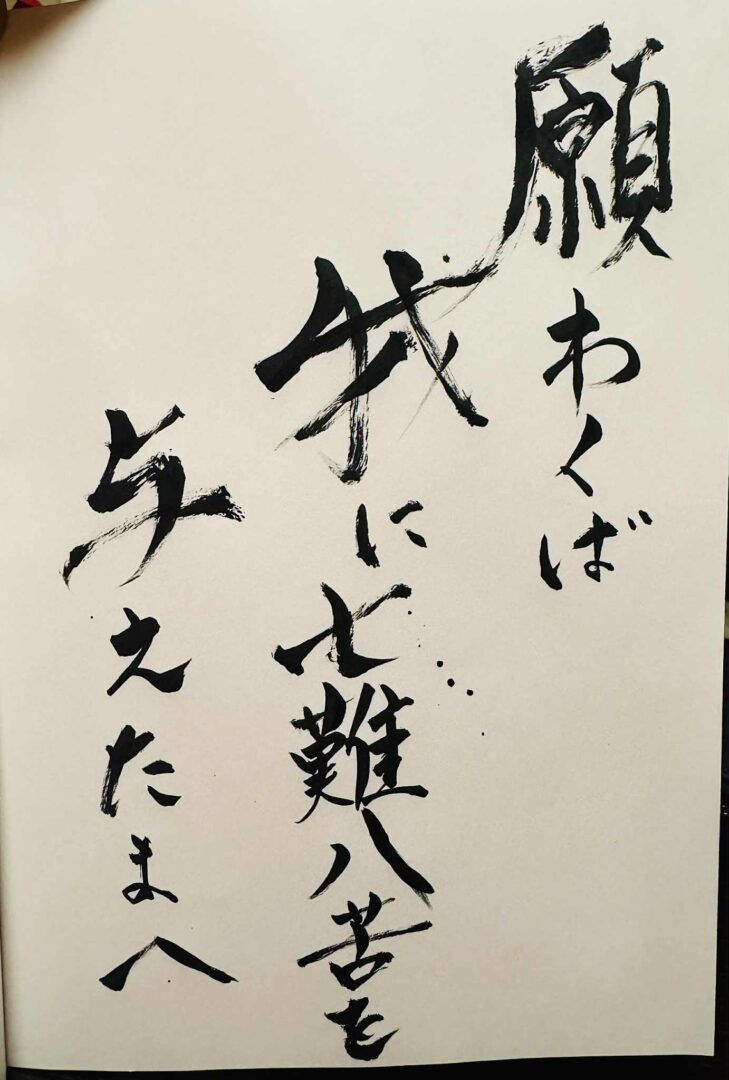 願わくば
我に七難八苦を
与えたまへ